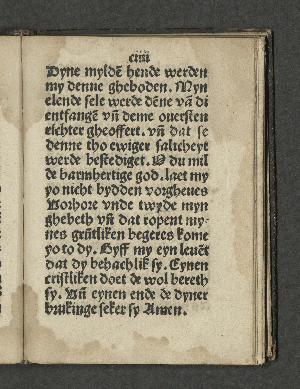 ciiii
Dyne myldē hende werden
my denne gheboden. Myn
elende sele werde dēne vā di
entfangē vn̄ deme ouersten
richter gheoffert. vn̄ dat se
denne tho ewiger salicheyt
werde bestediget. O du mil
de barmhertige god. laet my
yo nicht bydden vorgheues
Vorhore vnde twyde myn
ghebeth vn̄ dat ropent my-
nes grūtliken begeres kome
yo to dy. Gyff my eyn leuēt
dat dy behachlik sy. Eynen
cristliken doet de wol bereth
sy. Vn̄ eynen ende de dyner
brukinge seker sy Amen.